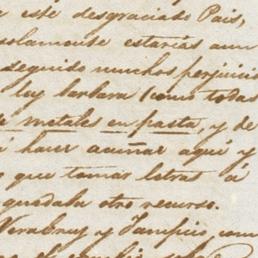 este desgraciado Pais,
solamente estarias aun
seguido muchos perjuicio
ley barbara (como todas
metales en pasta, y de
hacer acuñar aqui y
que tomar letras á
quedaba otro recurso.
Veracruz y Tampico, com